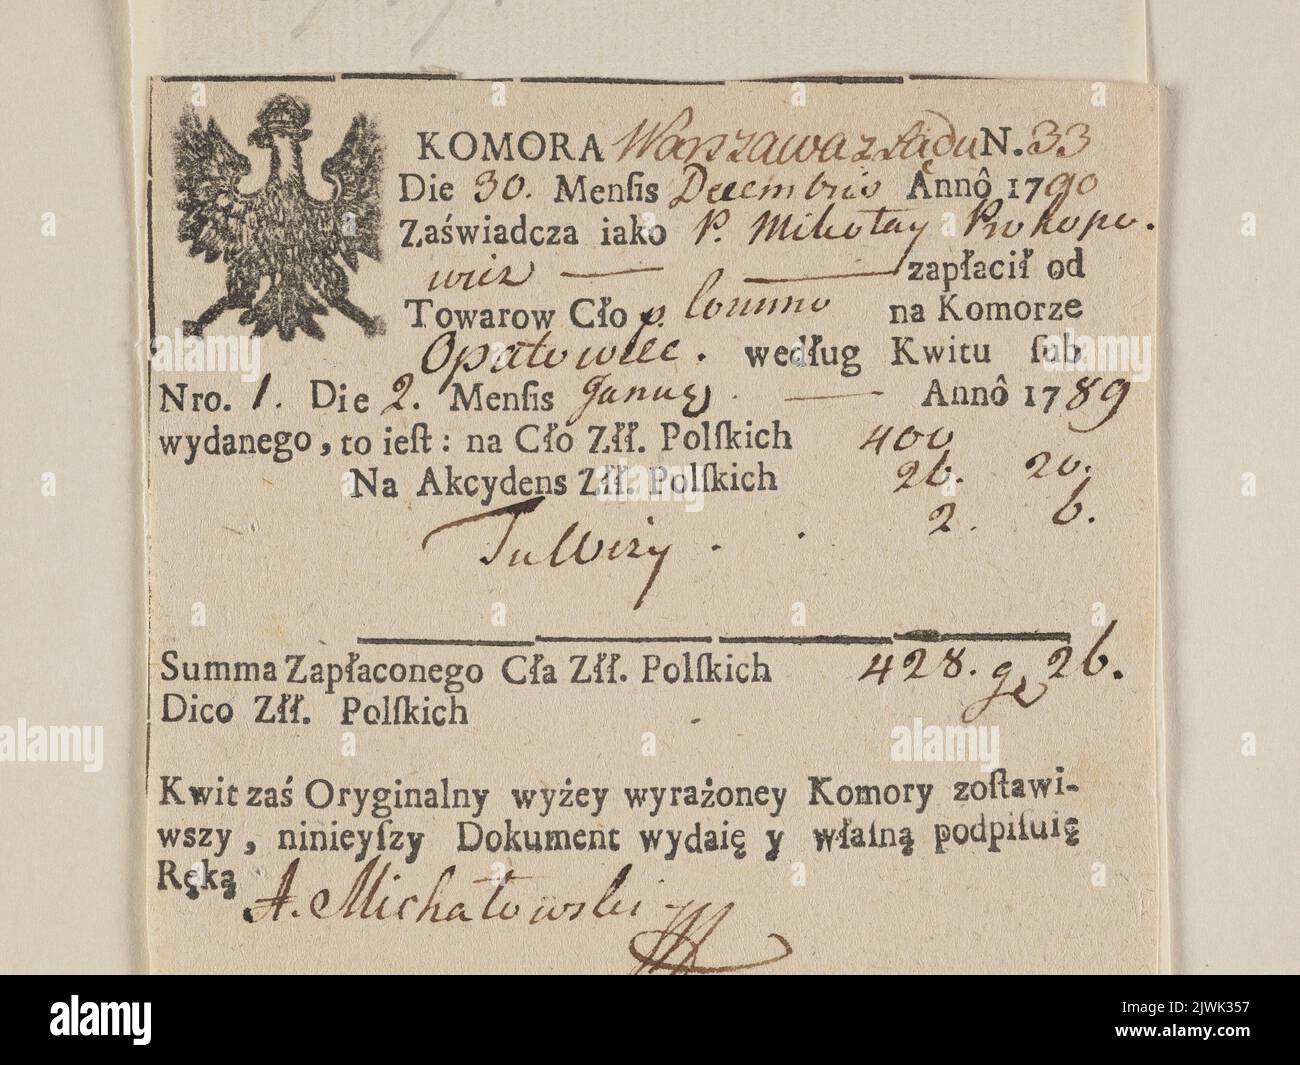 KOMORA Warszawa z Lądu N. 33
Die 30. Menſis Decembris Annô 1790
Zaświadcza iako P. Mikołay Prokopo-
wicz zapłacił od
Towarow Cło p. Commo na Komorze
Opatowiec. według Kwitu ſub
Nro. 1. Die 2. Menſis Januarj Annô 1789
wydanego, to ieſt: na Cło Złł. Polſkich 400
Na Akcydens Złł. Polſkich 26. 20.
2. 6.
Summa Zapłaconego Cła Złł. Polſkich 428. g 26.
Dico Złł. Polſkich
Kwit zaś Oryginalny wyżey wyrażoney Komory zoſtawi-
wszy, ninieyſzy Dokument wydaię y właſną podpiſuię
Ręką A. Michałowski
alamy
Image ID: 2JWK357
www.alamy.com